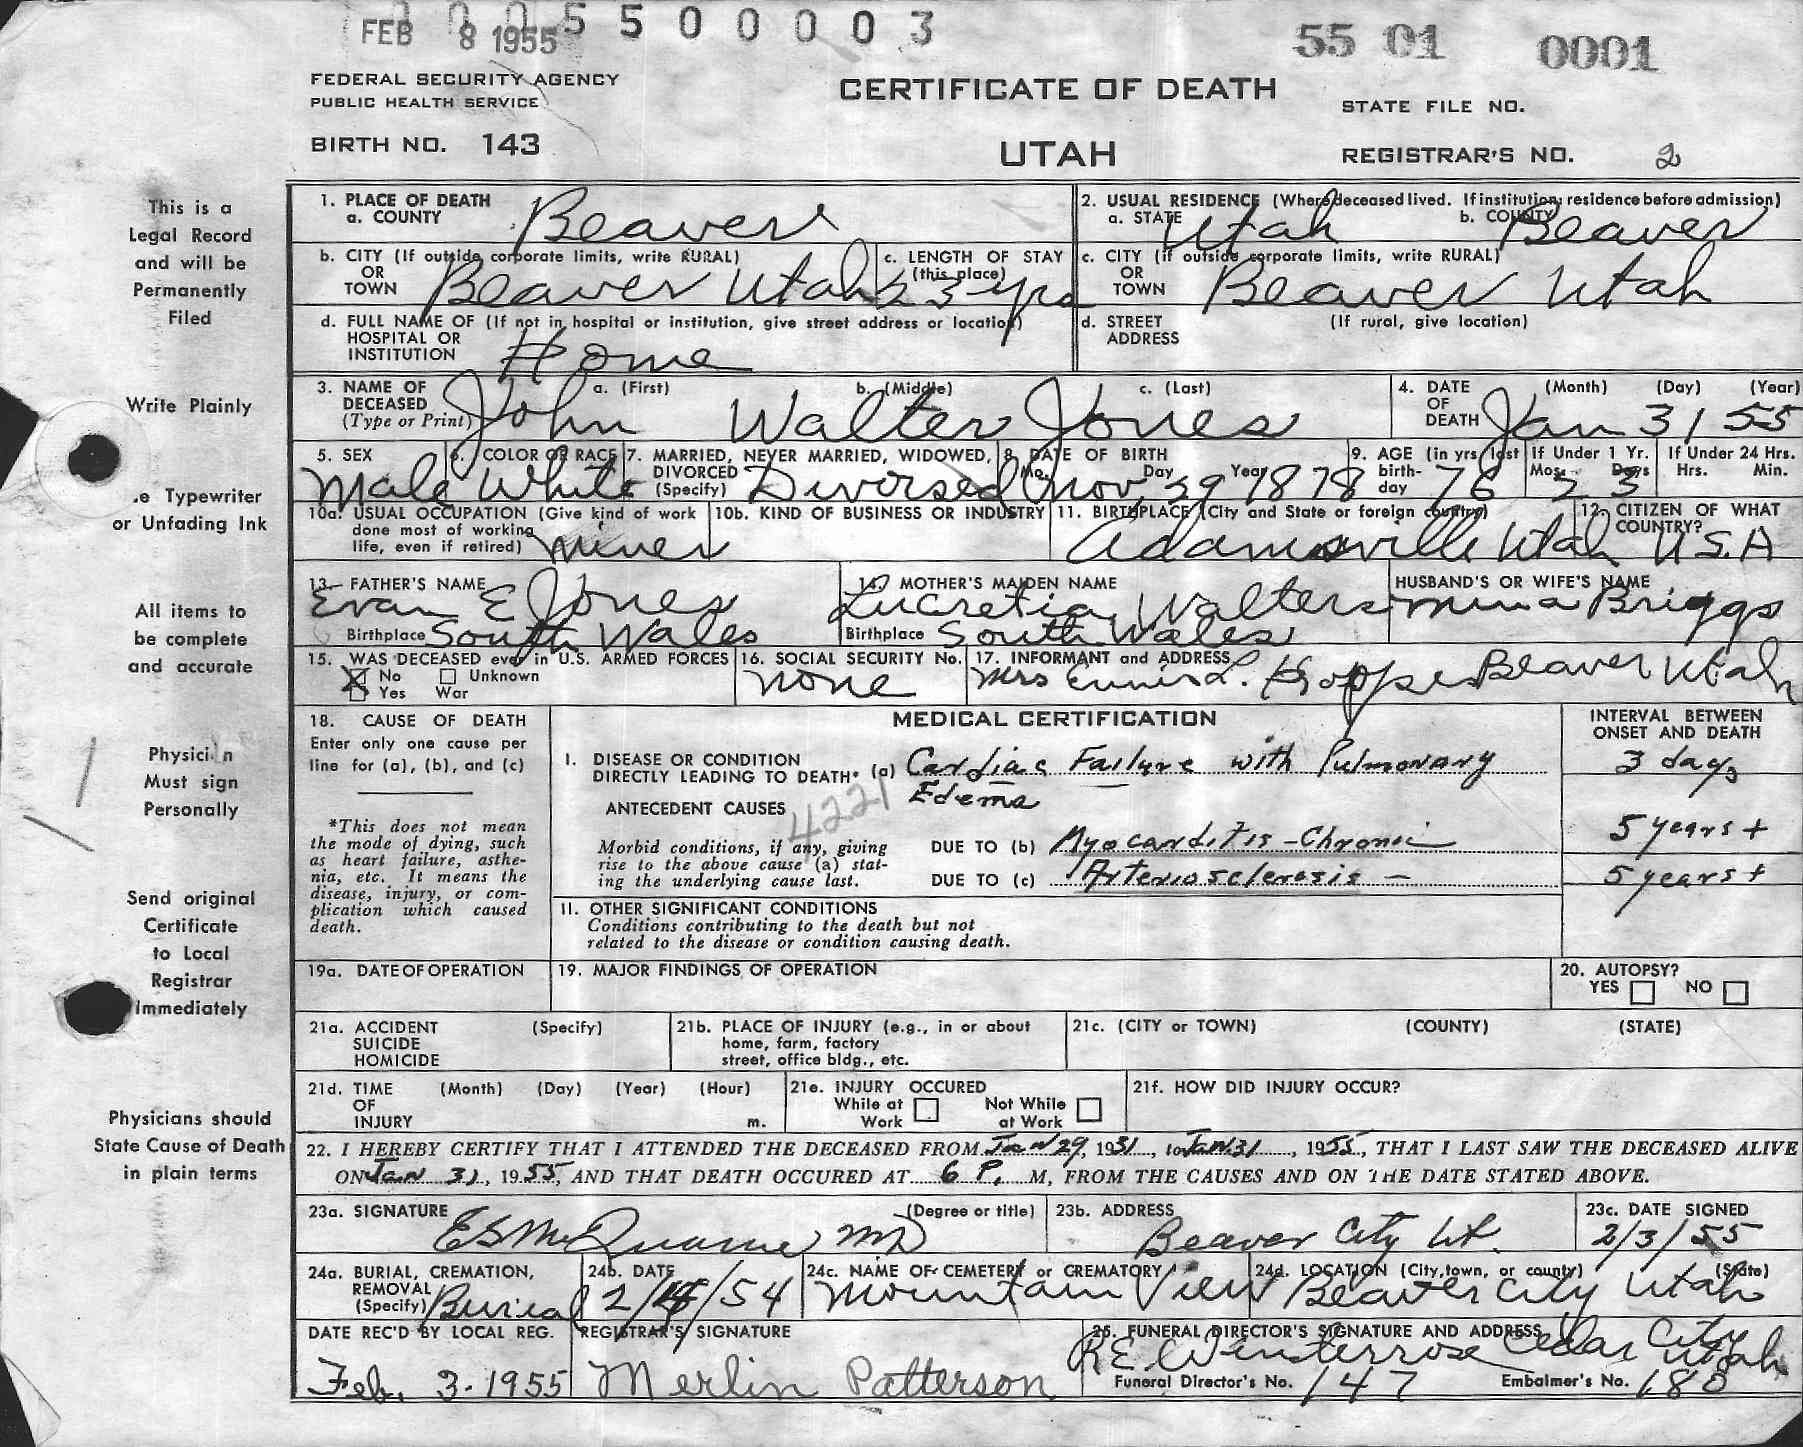 FEB 8 1955
0 0 0 5 5 0 0 0 0 3
55 01 0001
FEDERAL SECURITY AGENCY
PUBLIC HEALTH SERVICE
CERTIFICATE OF DEATH
STATE FILE NO.
BIRTH NO. 143
UTAH
REGISTRAR'S NO. 2
This is a
Legal Record
and will be
Permanently
Filed
Write Plainly
.e Typewriter
or Unfading Ink
All items to
be complete
and accurate
Physici n
Must sign
Personally
Send original
Certificate
to Local
Registrar
Immediately
Physicians should
State Cause of Death
in plain terms
1. PLACE OF DEATH
a. COUNTY Beaver
2. USUAL RESIDENCE (Where deceased lived. If institution; residence before admission)
a. STATE Utah b. COUNTY Beaver
b. CITY (If outside corporate limits, write RURAL)
OR
TOWN Beaver Utah
c. LENGTH OF STAY
(this place)
yrs
c. CITY (if outside corporate limits, write RURAL)
OR
TOWN Beaver Utah
d. FULL NAME OF (If not in hospital or institution, give street address or location)
HOSPITAL OR
INSTITUTION Home
d. STREET (If rural, give location)
ADDRESS
3. NAME OF a. (First) b. (Middle) c. (Last)
DECEASED
(Type or Print) John Walter Jones
4. DATE (Month) (Day) (Year)
OF
DEATH Jan 31 55
5. SEX
Male
6. COLOR OR RACE
White
7. MARRIED, NEVER MARRIED, WIDOWED,
DIVORCED
(Specify) Divorsed
8. DATE OF BIRTH
Mo. Day Year
Nov 29 1878
9. AGE (in yrs last
birth-
day 76
If Under 1 Yr.
Mos. Days
2 3
If Under 24 Hrs.
Hrs. Min.
10a. USUAL OCCUPATION (Give kind of work
done most of working
life, even if retired) miner
10b. KIND OF BUSINESS OR INDUSTRY
11. BIRTHPLACE (City and State or foreign country)
Adamsville Utah
12. CITIZEN OF WHAT
COUNTRY?
U.S.A
13. FATHER'S NAME
Evan E Jones
Birthplace South Wales
14. MOTHER'S MAIDEN NAME
Lucretia Walters
Birthplace South Wales
HUSBAND'S OR WIFE'S NAME
Mina Briggs
15. WAS DECEASED ever in U.S. ARMED FORCES
X No Unknown
Yes War
16. SOCIAL SECURITY No.
none
17. INFORMANT and ADDRESS
Mrs L. Beaver Utah
18. CAUSE OF DEATH
Enter only one cause per
line for (a), (b), and (c)
*This does not mean
the mode of dying, such
as heart failure, asthe-
nia, etc. It means the
disease, injury, or com-
plication which caused
death.
MEDICAL CERTIFICATION
INTERVAL BETWEEN
ONSET AND DEATH
I. DISEASE OR CONDITION
DIRECTLY LEADING TO DEATH* (a) Cardiac Failure with Pulmonary
Edema
3 days
ANTECEDENT CAUSES
4221
Morbid conditions, if any, giving
rise to the above cause (a) stat-
ing the underlying cause last.
DUE TO (b) Myocarditis - Chronic
5 years +
DUE TO (c) Arteriosclerosis -
5 years +
II. OTHER SIGNIFICANT CONDITIONS
Conditions contributing to the death but not
related to the disease or condition causing death.
19a. DATE OF OPERATION
19. MAJOR FINDINGS OF OPERATION
20. AUTOPSY?
YES NO
21a. ACCIDENT (Specify)
SUICIDE
HOMICIDE
21b. PLACE OF INJURY (e.g., in or about
home, farm, factory
street, office bldg., etc.
21c. (CITY or TOWN) (COUNTY) (STATE)
21d. TIME (Month) (Day) (Year) (Hour)
OF
INJURY m.
21e. INJURY OCCURED
While at Work
Not While at Work
21f. HOW DID INJURY OCCUR?
22. I HEREBY CERTIFY THAT I ATTENDED THE DECEASED FROM Jan 29, 1931, to Jan. 31, 1955, THAT I LAST SAW THE DECEASED ALIVE
ON Jan 31, 1955, AND THAT DEATH OCCURED AT 6 P. M, FROM THE CAUSES AND ON THE DATE STATED ABOVE.
23a. SIGNATURE (Degree or title)
E S McQuarrie MD
23b. ADDRESS
Beaver City Ut.
23c. DATE SIGNED
2/3/55
24a. BURIAL, CREMATION,
REMOVAL
(Specify) Burial
24b. DATE
2/4/54
24c. NAME OF CEMETERY or CREMATORY
Mountain View
24d. LOCATION (City, town, or county) (State)
Beaver City Utah
DATE REC'D BY LOCAL REG.
Feb. 3. 1955
REGISTRAR'S SIGNATURE
Merlin Patterson
25. FUNERAL DIRECTOR'S SIGNATURE AND ADDRESS
R E Winterrose Cedar City Utah
Funeral Director's No. 147
Embalmer's No. 180